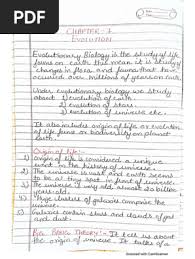 PDF
Date
Page
CHAPTER-7
Evolution
Evolutionary Biology is the study of life
forms on earth this mean it is study of
changes in flora and fauna that have
occured over millions of years on earth
Under evolutionary biology we study
about 1) evolution of earth
2) evolution of stars
3) evolution of universe etc.
It also includes origin of life or evolution
of life forms or biodiversity on planet
earth.
Origin of Life :-
1) Origin of life is considered a unique
event in the history of universe
2) The universe is vast and earth seems
to be a tiny spot in front of universe
3) Huge clusters of galaxies comprise the
universe
Galaxies contain stars and clouds of gas
and dust.
Big Bang Theory :- It tell us about
the origin of universe. It talks of a
Scanned with CamScanner